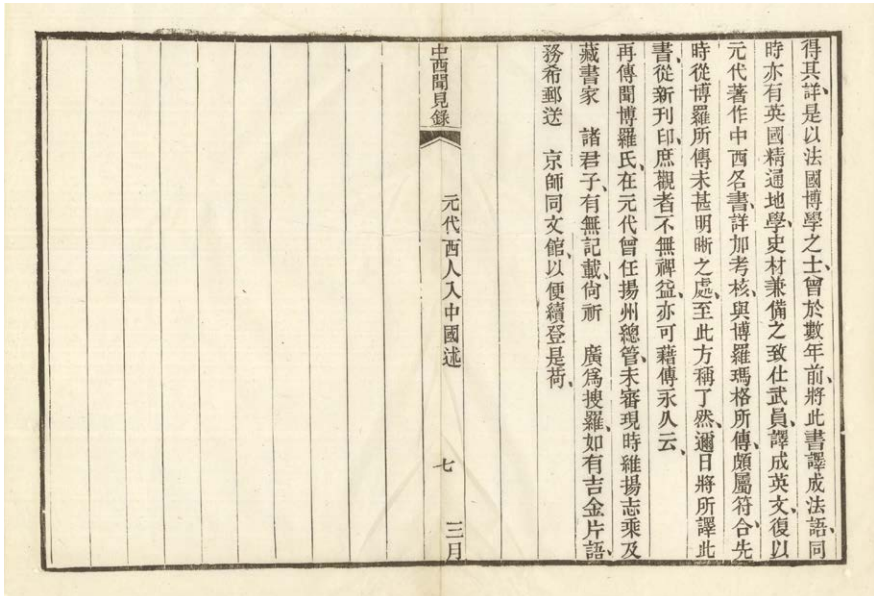 得其詳、是以法國博學之士、曾於數年前、將此書譯成法語、同
時亦有英國精通地學、史材兼備之致仕武員、譯成英文、復以
元代著作中西各書、詳加考核、與博羅瑪格所傳、頗屬符合、先
時從博羅所傳未甚明晰之處、至此方稱了然、邇日將所譯此
書、從新刊印、庶觀者不無裨益、亦可藉傳永久云、
再傳聞博羅氏、在元代曾任揚州總管、未審現時維揚志乘及
藏書家　諸君子、有無記載、尙祈　廣爲搜羅、如有吉金片語、
務希郵送　京師同文館、以便續登是荷、
中西聞見錄
元代西人入中國述
七
三月